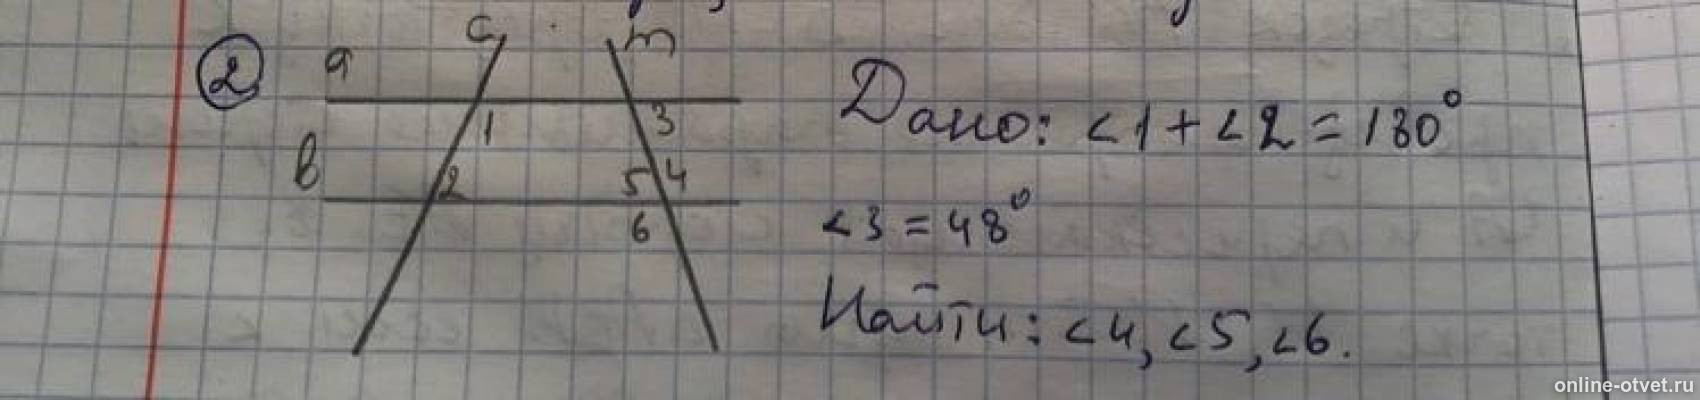 2
a
c
m
1
3
b
2
5
4
6
Дано: <1+<2=180°
<3=48°
Найти: <4, <5, <6.
online-otvet.ru